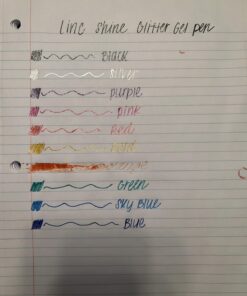 Linc Shine Glitter Gel pen
Black
Silver
purple
pink
Red
Gold
Green
Sky Blue
Blue